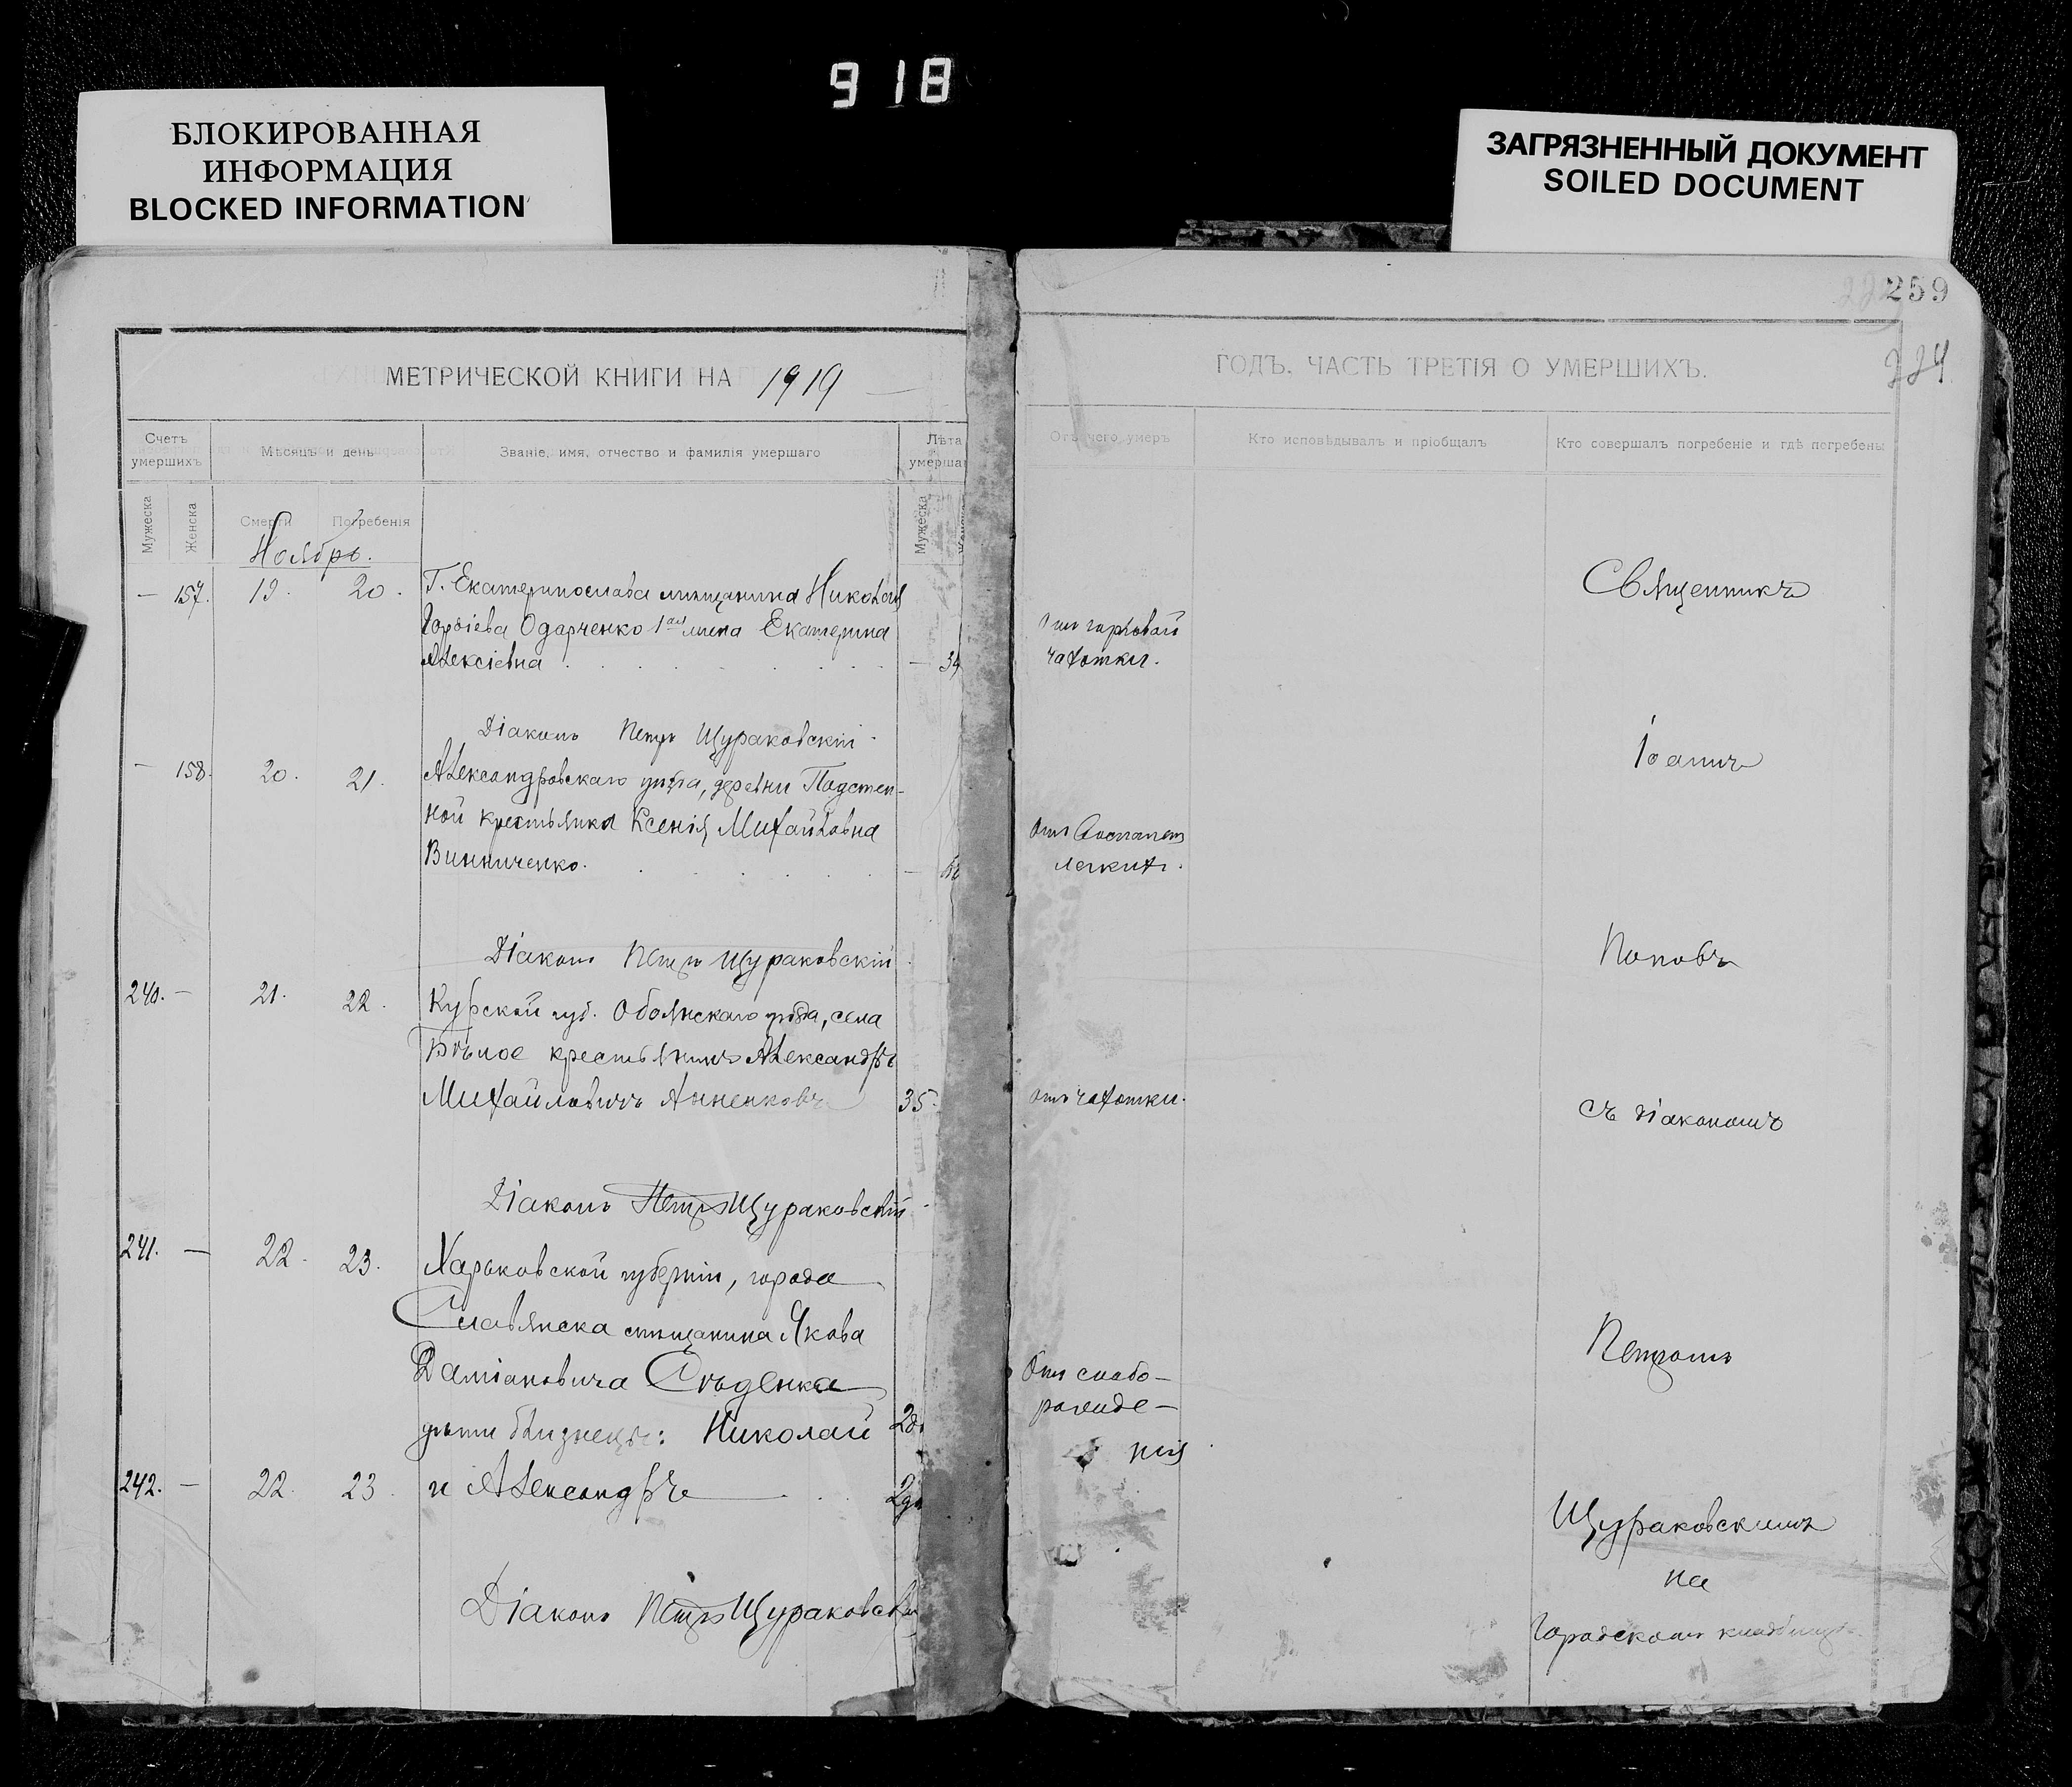 918
БЛОКИРОВАННАЯ
ИНФОРМАЦИЯ
BLOCKED INFORMATION
ЗАГРЯЗНЕННЫЙ ДОКУМЕНТ
SOILED DOCUMENT
259
224
МЕТРИЧЕСКОЙ КНИГИ НА 1919
ГОДЪ. ЧАСТЬ ТРЕТІЯ О УМЕРШИХЪ.
Счетъ умершихъ
Мѣсяцъ и день
Званіе, имя, отчество и фамилія умершаго
Лѣта умерша
Отъ чего умеръ
Кто исповѣдывалъ и пріобщалъ
Кто совершалъ погребеніе и гдѣ погребены
Мужеска
Женска
Смерти
Погребенія
Мужеска
Женска
Ноябрь.
— 157. 19. 20.
Г. Екатеринослава мѣщанина Николая
Одарченко жена Екатерина
Алексіевна — 34
Отъ горловой
чахотки.
Діаконъ Петръ Щураковскій
— 158. 20. 21.
Александровскаго уѣзда, деревни Подстен-
ной крестьянка Ксенія Михайловна
Винниченко. —
Отъ
легкихъ.
Діаконъ Петръ Щураковскій
240. — 21. 22.
Курской губ. Обоянскаго уѣзда, села
Бѣлое крестьянинъ Александръ
Михайловичъ Анненковъ 35.
отъ чахотки.
Діаконъ Петръ Щураковскій
241. — 22. 23.
Харьковской губерніи, города
Славянска мѣщанина Якова
Даміановича Слѣденка
дѣти близнецы: Николай 2д.
242. — 22. 23.
и Александръ 2д.
Отъ слабо-
рожде-
нія
Діаконъ Петръ Щураковскій
Священникъ
Іоаннъ
Поповъ
съ діакономъ
Петромъ
Щураковскимъ
на
городскомъ кладбищѣ